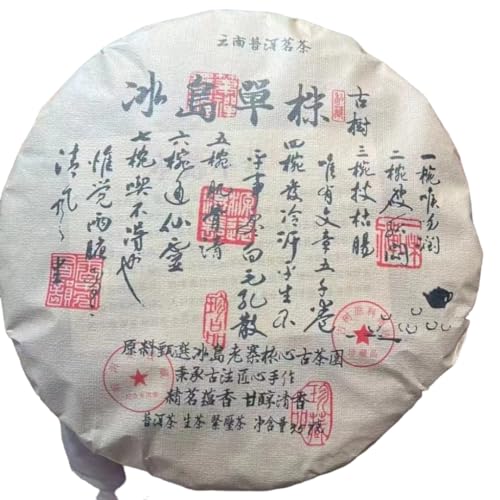 云南普洱茗茶
冰島單株
古树
一椀喉吻润
二椀破孤闷
三椀搜枯肠
唯有文章五千卷
四椀发轻汗平生不
平事尽向毛孔散
五椀肌骨清
六椀通仙灵
七椀喫不得也
惟觉两腋
清风
珍品
原料甄选冰岛老寨核心古茶园
秉承古法匠心手作
精茗蕴香 甘醇清香
普洱茶 生茶 紧压茶 净含量357克
珍藏